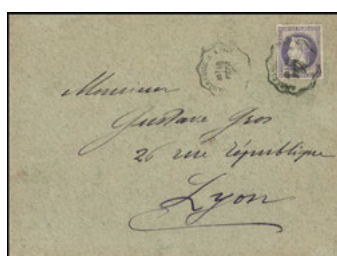 Monsieur
Gustave Gros
26 rue République
Lyon